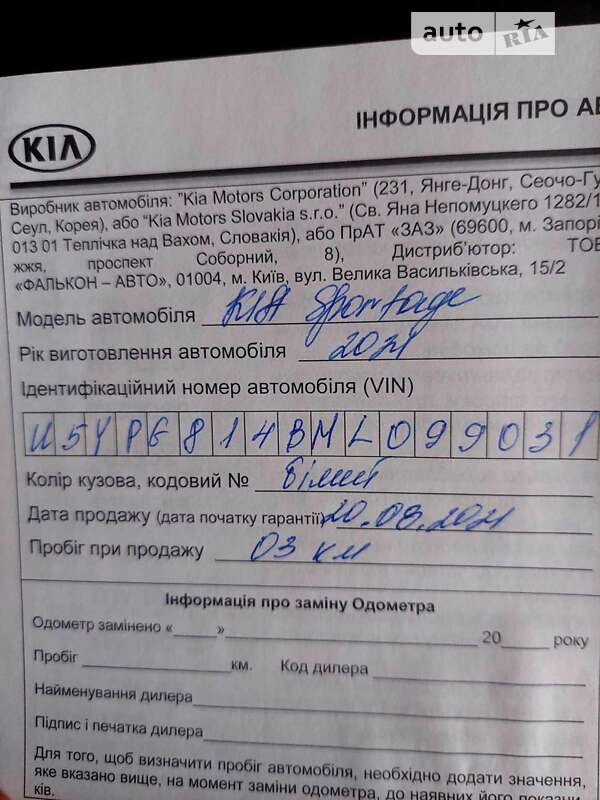 auto RIA
ІНФОРМАЦІЯ ПРО
KIA
Виробник автомобіля: "Kia Motors Corporation" (231, Янге-Донг, Сеочо-Гу
Сеул, Корея), або "Kia Motors Slovakia s.r.o." (Св. Яна Непомуцкего 1282/1
013 01 Теплічка над Вахом, Словакія), або ПрАТ «ЗАЗ» (69600, м. Запорі
жжя, проспект Соборний, 8), Дистриб'ютор: ТОВ
«ФАЛЬКОН – АВТО», 01004, м. Київ, вул. Велика Васильківська, 15/2
Модель автомобіля KIA Sportage
Рік виготовлення автомобіля 2021
Ідентифікаційний номер автомобіля (VIN)
U5YPG814BML099031
Колір кузова, кодовий № білий
Дата продажу (дата початку гарантії) 20.08.2021
Пробіг при продажу 03 км
Інформація про заміну Одометра
Одометр замінено «_____»_____ 20_____ року
Пробіг _____ км. Код дилера _____
Найменування дилера
Підпис і печатка дилера
Для того, щоб визначити пробіг автомобіля, необхідно додати значення,
яке вказано вище, на момент заміни одометра, до наявних його показни
ків.